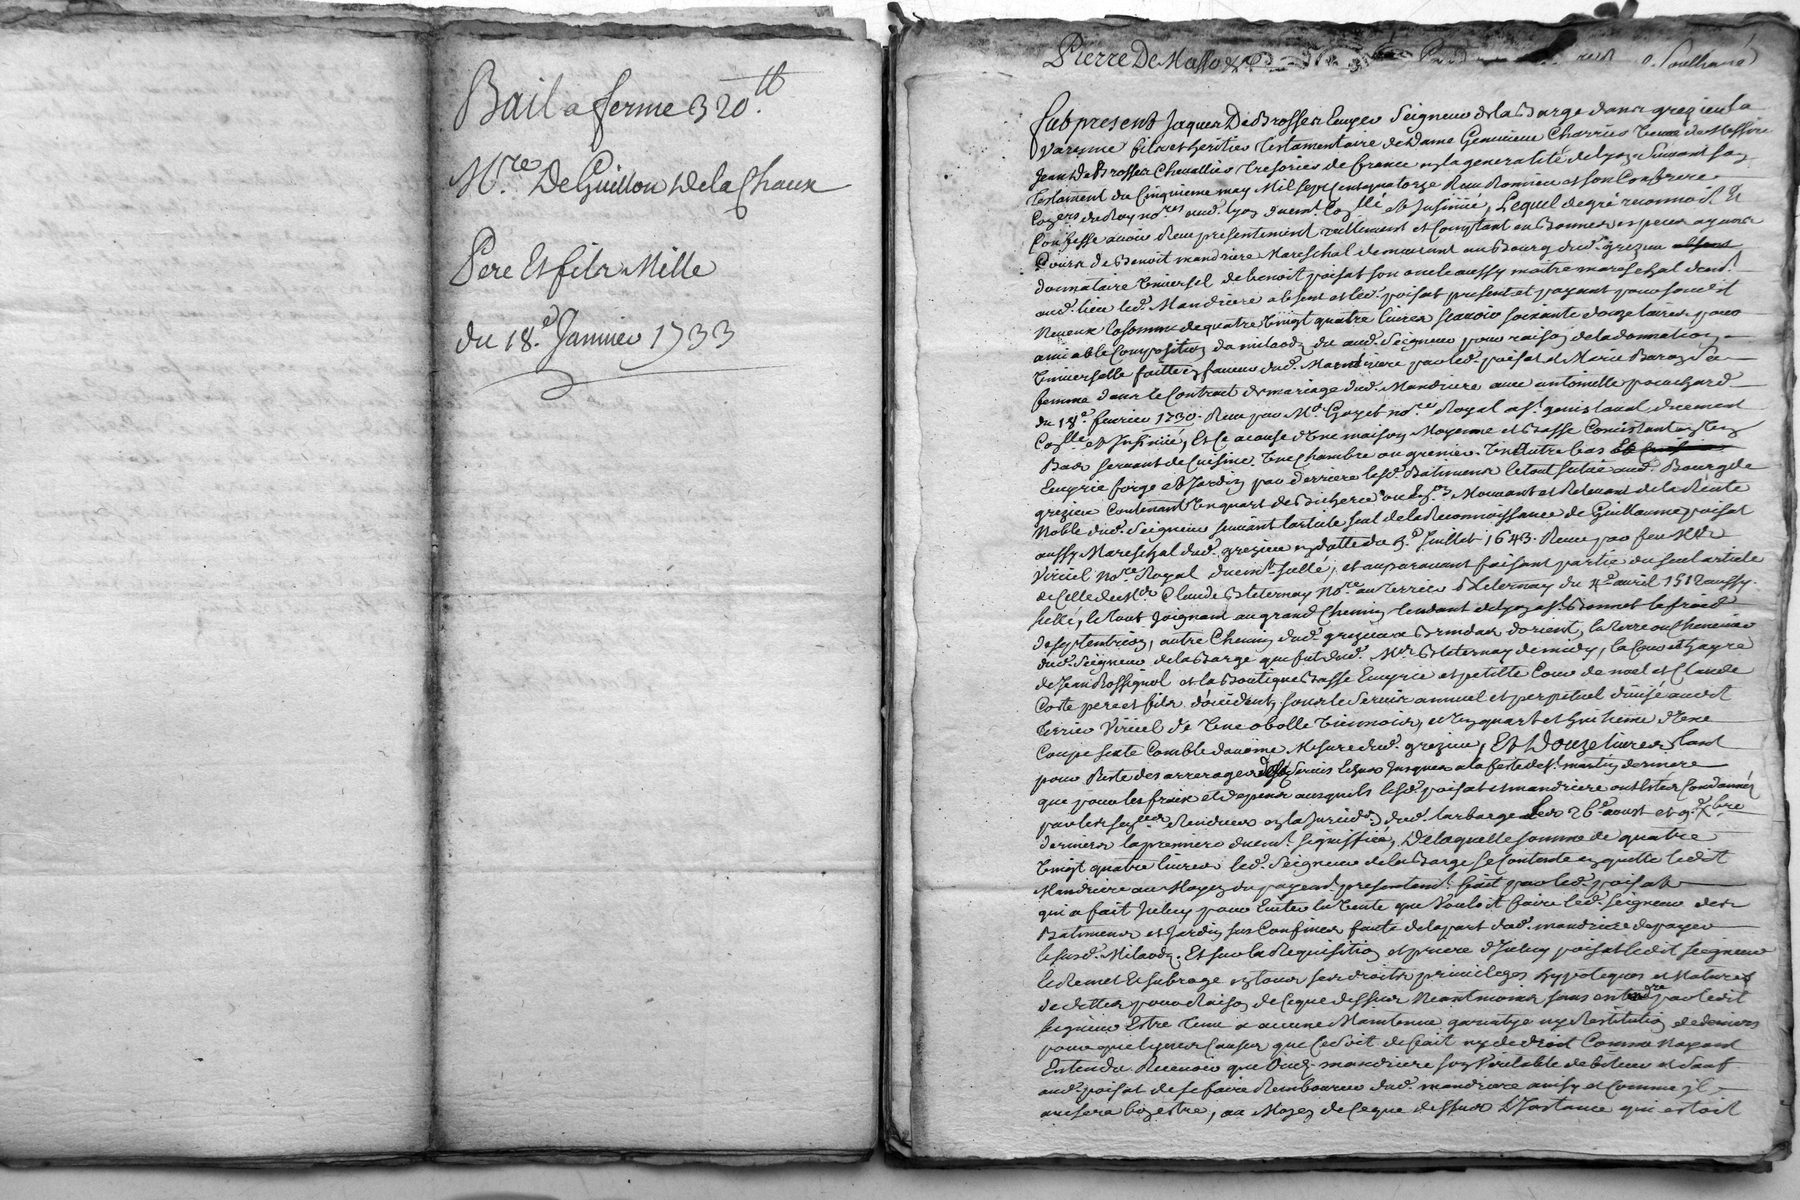 Bail a ferme 320.tt
Mre. De Guillon De la Chaux
Pere Et fils Mille
du 18.e Janvier 1733
Pierre De Masso
fut present Jaques De Brosses Ecuyer Seigneur de la Barge dans grezieu la
Varenne fils et heritier testamentaire de Dame Genevieve Charrier veuve de Messire
Jean De Brosses Chevallier Tresorier de france en la generalité de lyon suivant son
testament du Cinquieme may Mil sept cent quatorze Receu Ronnieu et son Confrere
Cogers du Roy nores aud. lyon duemt Collé et Insinué, Lequel de gré reconnoit et
Confesse avoir Receu presentement reellement et Comptant en Bonnes especes ayant
Cours de Benoit mandriere Mareschal demeurant au Bourg dud. grezieu
donnataire Universel de benoit poisat son oncle aussy maitre mareschal demt.
aud. lieu led. Mandriere absent et led. poisat present et payant pour son dit
Neveux la somme de quatre Vingt quatre livres scavoir soixante douze livres pour
amiable Composition du milaods du aud. Seigneur pour raison de la donnation
Universelle faitte en faveur dud. Mandriere par led. poisat et Marie Baron sa
femme dans le Contract de mariage dud. Mandriere avec antoinette pouchard
du 18e. fevrier 1730. Receu par Me Guyet nore. Royal a St. genis laval duement
Collé et Insinué, Et Ce a cause d'Une maison Moyenne et Basse Consistant en Un
Bas servant de Cuisine Une Chambre ou grenier. Un autre bas
Ecuyrie forge et Jardin par derriere lesd. Batiments le tout situé aud. Bourg de
grezieu Contenant Un quart de Bicheree ou Env.on Mouvant et Relevant de la Rente
Noble dud. Seigneur suivant l'article seul de la Reconnoissance de Guillaume poisat
aussy Mareschal dud. grezieu en datte du 5.e Juillet 1643. Receu par feu Me
Viricel Nore Royal duemt. scellé, et auparavant faisant partie du seul article
de Celle de Me Claude Sleternay Nore. au terrier Sleternay du 4e. avril 1512 aussy
scellé, le tout Joignant au grand Chemin tendant de lyon a St. Bonnet le froid
de septentrion, autre Chemin dud. grezieu a Brindas d'orient, la terre ou Cheneviere
dud. Seigneur de la Barge que fut dud. Me Sleternay de midy, la Cour et hayre
de Jean Rossignol et la Boutique Basse Ecuyrie et petitte Cour de noel et Claude
Coste pere et fils d'occident, sous le Servis annuel et perpetuel divisé aud
terrier Viricel de Une obolle Viennois, et Un quart et huitieme d'Une
Coupe seste Comble d'avoine Mesure dud. grezieu, Et Douze livres tant
pour Reste des arrerages desd. Servis Echus Jusques a la feste de St. martin derniere
que pour les fraix et depens auxquels lesd. poisat et mandriere ont Estés Condamnés
par les sences Rendues en la Juridon dud. la barge Les 26e. aoust et 9e. Xbre
derniers la premiere duemt. signiffiée, De laquelle somme de quatre
Vingt quatre livres led. Seigneur de la Barge se Contente en quitte ledit
Mandriere au Moyen du payemt. presentemt. fait par led. poisat
qui a fait Iceluy pour Eviter la Vente que Vouloit faire led. Seigneur des
Batiments et Jardin sus Confinés faute de la part dud. mandriere de payer
le susd. Milaods. Et sur la Requisition et priere d'Iceluy poisat ledit seigneur
le Remet et subroge en tous ses droits privileges hypoteques et Natures
de dettes pour Raison de Ce que dessus Neantmoins sans entendre par ledit
seigneur Estre tenu a aucune Maintenue garantye ny Restitution de deniers
pour quelques Causes que Ce soit de fait ny de droit Comme Nayant
Entendu Recevoir que dud. mandriere son Veritable debiteur et sauf
aud. poisat de se faire Rembourcer dud. mandriere ainsy et Comme Il
avisera bon estre, au Moyen de Ce que dessus L'Instance qui estoit